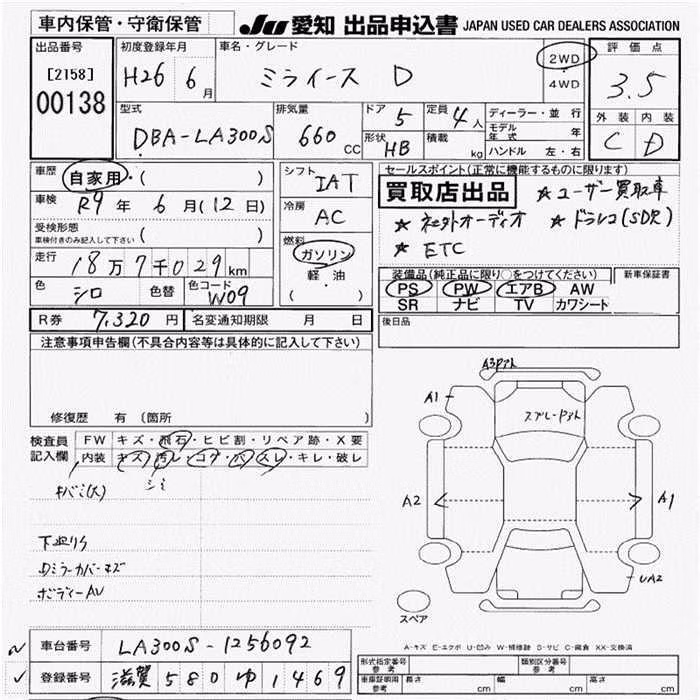 車内保管・守衛保管
JU 愛知 出品申込書 JAPAN USED CAR DEALERS ASSOCIATION
出品番号
[2158]
00138
初度登録年月
H26年 6月
車名・グレード
ミライース D
2WD
・
4WD
評価点
3.5
外装 内装
C D
型式
DBA-LA300S
排気量
660 CC
ドア 5
定員 4人
形状 HB
積載 kg
ディーラー・並行
モデル年式 年
ハンドル 左・右
車歴 自家用・( )
車検 R9年 6月(12日)
受検形態
車検付きのみ記入して下さい ( )
走行 18万7千029km
色 シロ
色替
色コード W09
シフト IAT
冷房 AC
燃料
ガソリン
軽・油
( )
セールスポイント(正常に機能するものに限ります)
買取店出品
★ユーザー買取車
★社外オーディオ ★ドラレコ(SDR)
★ETC
装備品(純正品に限り○をつけてください) 新車保証書
PS PW エアB AW
SR ナビ TV カワシート
R券 7,320円
名変通知期限 月 日
後日品
注意事項申告欄(不具合内容等は具体的に記入して下さい)
修復歴 有 (箇所
検査員記入欄
FW キズ・飛石・ヒビ割・リペア跡・X要
内装 キズ・汚レ・コゲ・穴・スレ・キレ・破レ
シミ
キバミ(大)
下廻りS
Dミラーカバーキズ
ボディーAU
A3Pアト
A1
スプレーPアト
A2
A1
UA2
スペア
A-キズ E-エクボ U-凹み W-補修跡 S-サビ C-腐食 XX-交換済
車台番号 LA300S-1256092
登録番号 滋賀 580 ゆ 1469
形式指定番号 参考
類別区分番号 参考
車庫証明用 参考
長さ cm
幅 cm
高さ cm